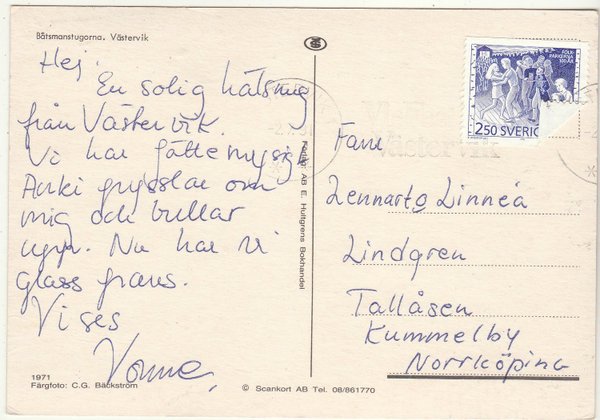 Båtsmanstugorna. Västervik
Hej!
En solig hälsning
från Västervik.
Vi har jättemysigt
Anki pysslar om
mig och bullar
upp. Nu har vi
glass paus.
Vi ses
1971
Färgfoto: C.G. Bäckström
Förlag: AB E. Hultgrens Bokhandel
© Scankort AB Tel. 08/861770
FOLK-
PARKERNA
100 ÅR
2.50 SVERIGE
Västervik
Fam
Lennart o Linnéa
Lindgren
Tallåsen
Kummelby
Norrköping